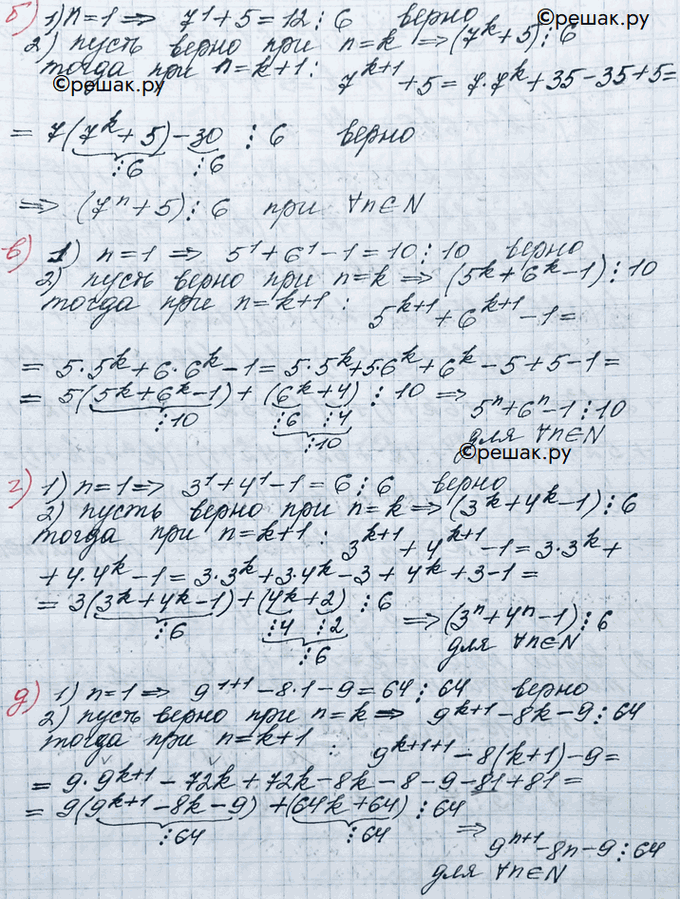 б) 1) n=1 ⇒ 7¹+5=12⋮6 верно
©решак.ру
2) пусть верно при n=k ⇒ (7ᵏ+5)⋮6
тогда при n=k+1: 7ᵏ⁺¹+5=7·7ᵏ+35-35+5=
©решак.ру
= 7(7ᵏ+5)-30 ⋮ 6 верно
⋮6 ⋮6
⇒ (7ⁿ+5)⋮6 при ∀n∈N
в) 1) n=1 ⇒ 5¹+6¹-1=10⋮10 верно
2) пусть верно при n=k ⇒ (5ᵏ+6ᵏ-1)⋮10
тогда при n=k+1: 5ᵏ⁺¹+6ᵏ⁺¹-1=
= 5·5ᵏ+6·6ᵏ-1=5·5ᵏ+5·6ᵏ+6ᵏ-5+5-1=
= 5(5ᵏ+6ᵏ-1)+(6ᵏ+4) ⋮10 ⇒ 5ⁿ+6ⁿ-1⋮10
⋮10 ⋮6 ⋮4 для ∀n∈N
⋮10
©решак.ру
г) 1) n=1 ⇒ 3¹+4¹-1=6⋮6 верно
2) пусть верно при n=k ⇒ (3ᵏ+4ᵏ-1)⋮6
тогда при n=k+1: 3ᵏ⁺¹+4ᵏ⁺¹-1=3·3ᵏ+
+4·4ᵏ-1=3·3ᵏ+3·4ᵏ-3+4ᵏ+3-1=
= 3(3ᵏ+4ᵏ-1)+(4ᵏ+2) ⋮6 ⇒ (3ⁿ+4ⁿ-1)⋮6
⋮6 ⋮4 ⋮2 для ∀n∈N
⋮6
д) 1) n=1 ⇒ 9¹⁺¹-8·1-9=64⋮64 верно
2) пусть верно при n=k ⇒ 9ᵏ⁺¹-8k-9⋮64
тогда при n=k+1: 9ᵏ⁺¹⁺¹-8(k+1)-9=
= 9·9ᵏ⁺¹-72k+72k-8k-8-9-81+81=
= 9(9ᵏ⁺¹-8k-9)+(64k+64)⋮64
⋮64 ⋮64 ⇒ 9ⁿ⁺¹-8n-9⋮64
для ∀n∈N